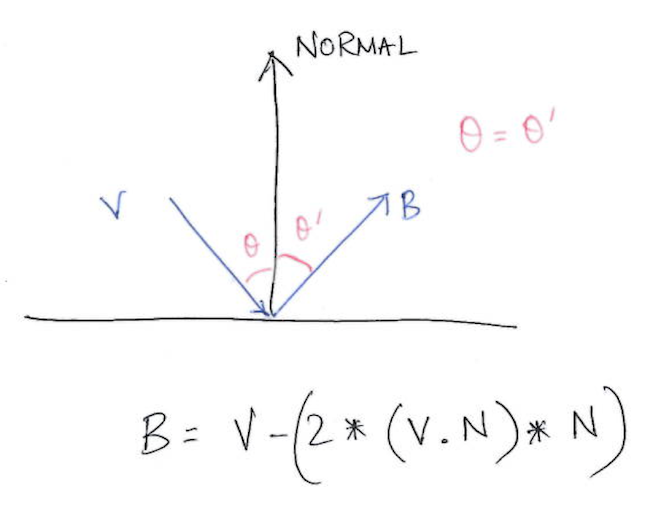 NORMAL
θ = θ'
V
B
θ
θ'
B = V - (2 * (V . N) * N)